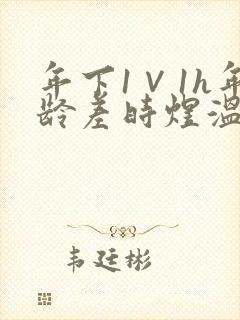 年下1V1h年
龄差时煜温
韦廷彬